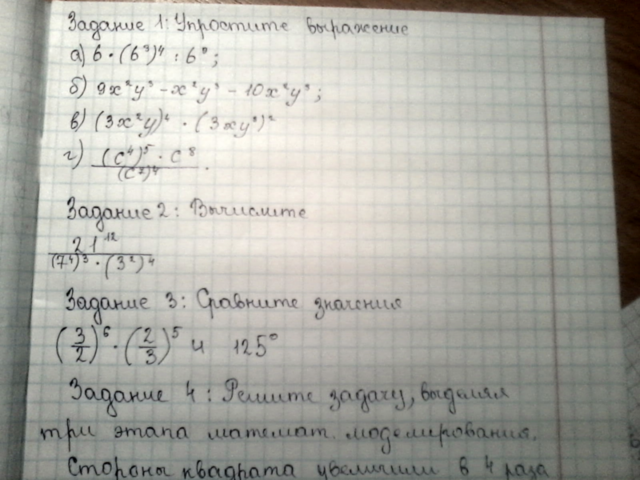 Задание 1: Упростите выражение
а) 6 · (6³)⁴ : 6⁰;
б) 9x²y³ - x²y³ - 10x²y³;
в) (3x²y)⁴ · (3xy³)²
г) (c⁴)⁵ · c⁸ / (c²)⁴.
Задание 2: Вычислите
21¹² / (7⁴)³ · (3²)⁴
Задание 3: Сравните значения
(3/2)⁶ · (2/3)⁵ и 125⁰
Задание 4: Решите задачу, выделяя
три этапа математ. моделирования.
Стороны квадрата увеличили в 4 раза